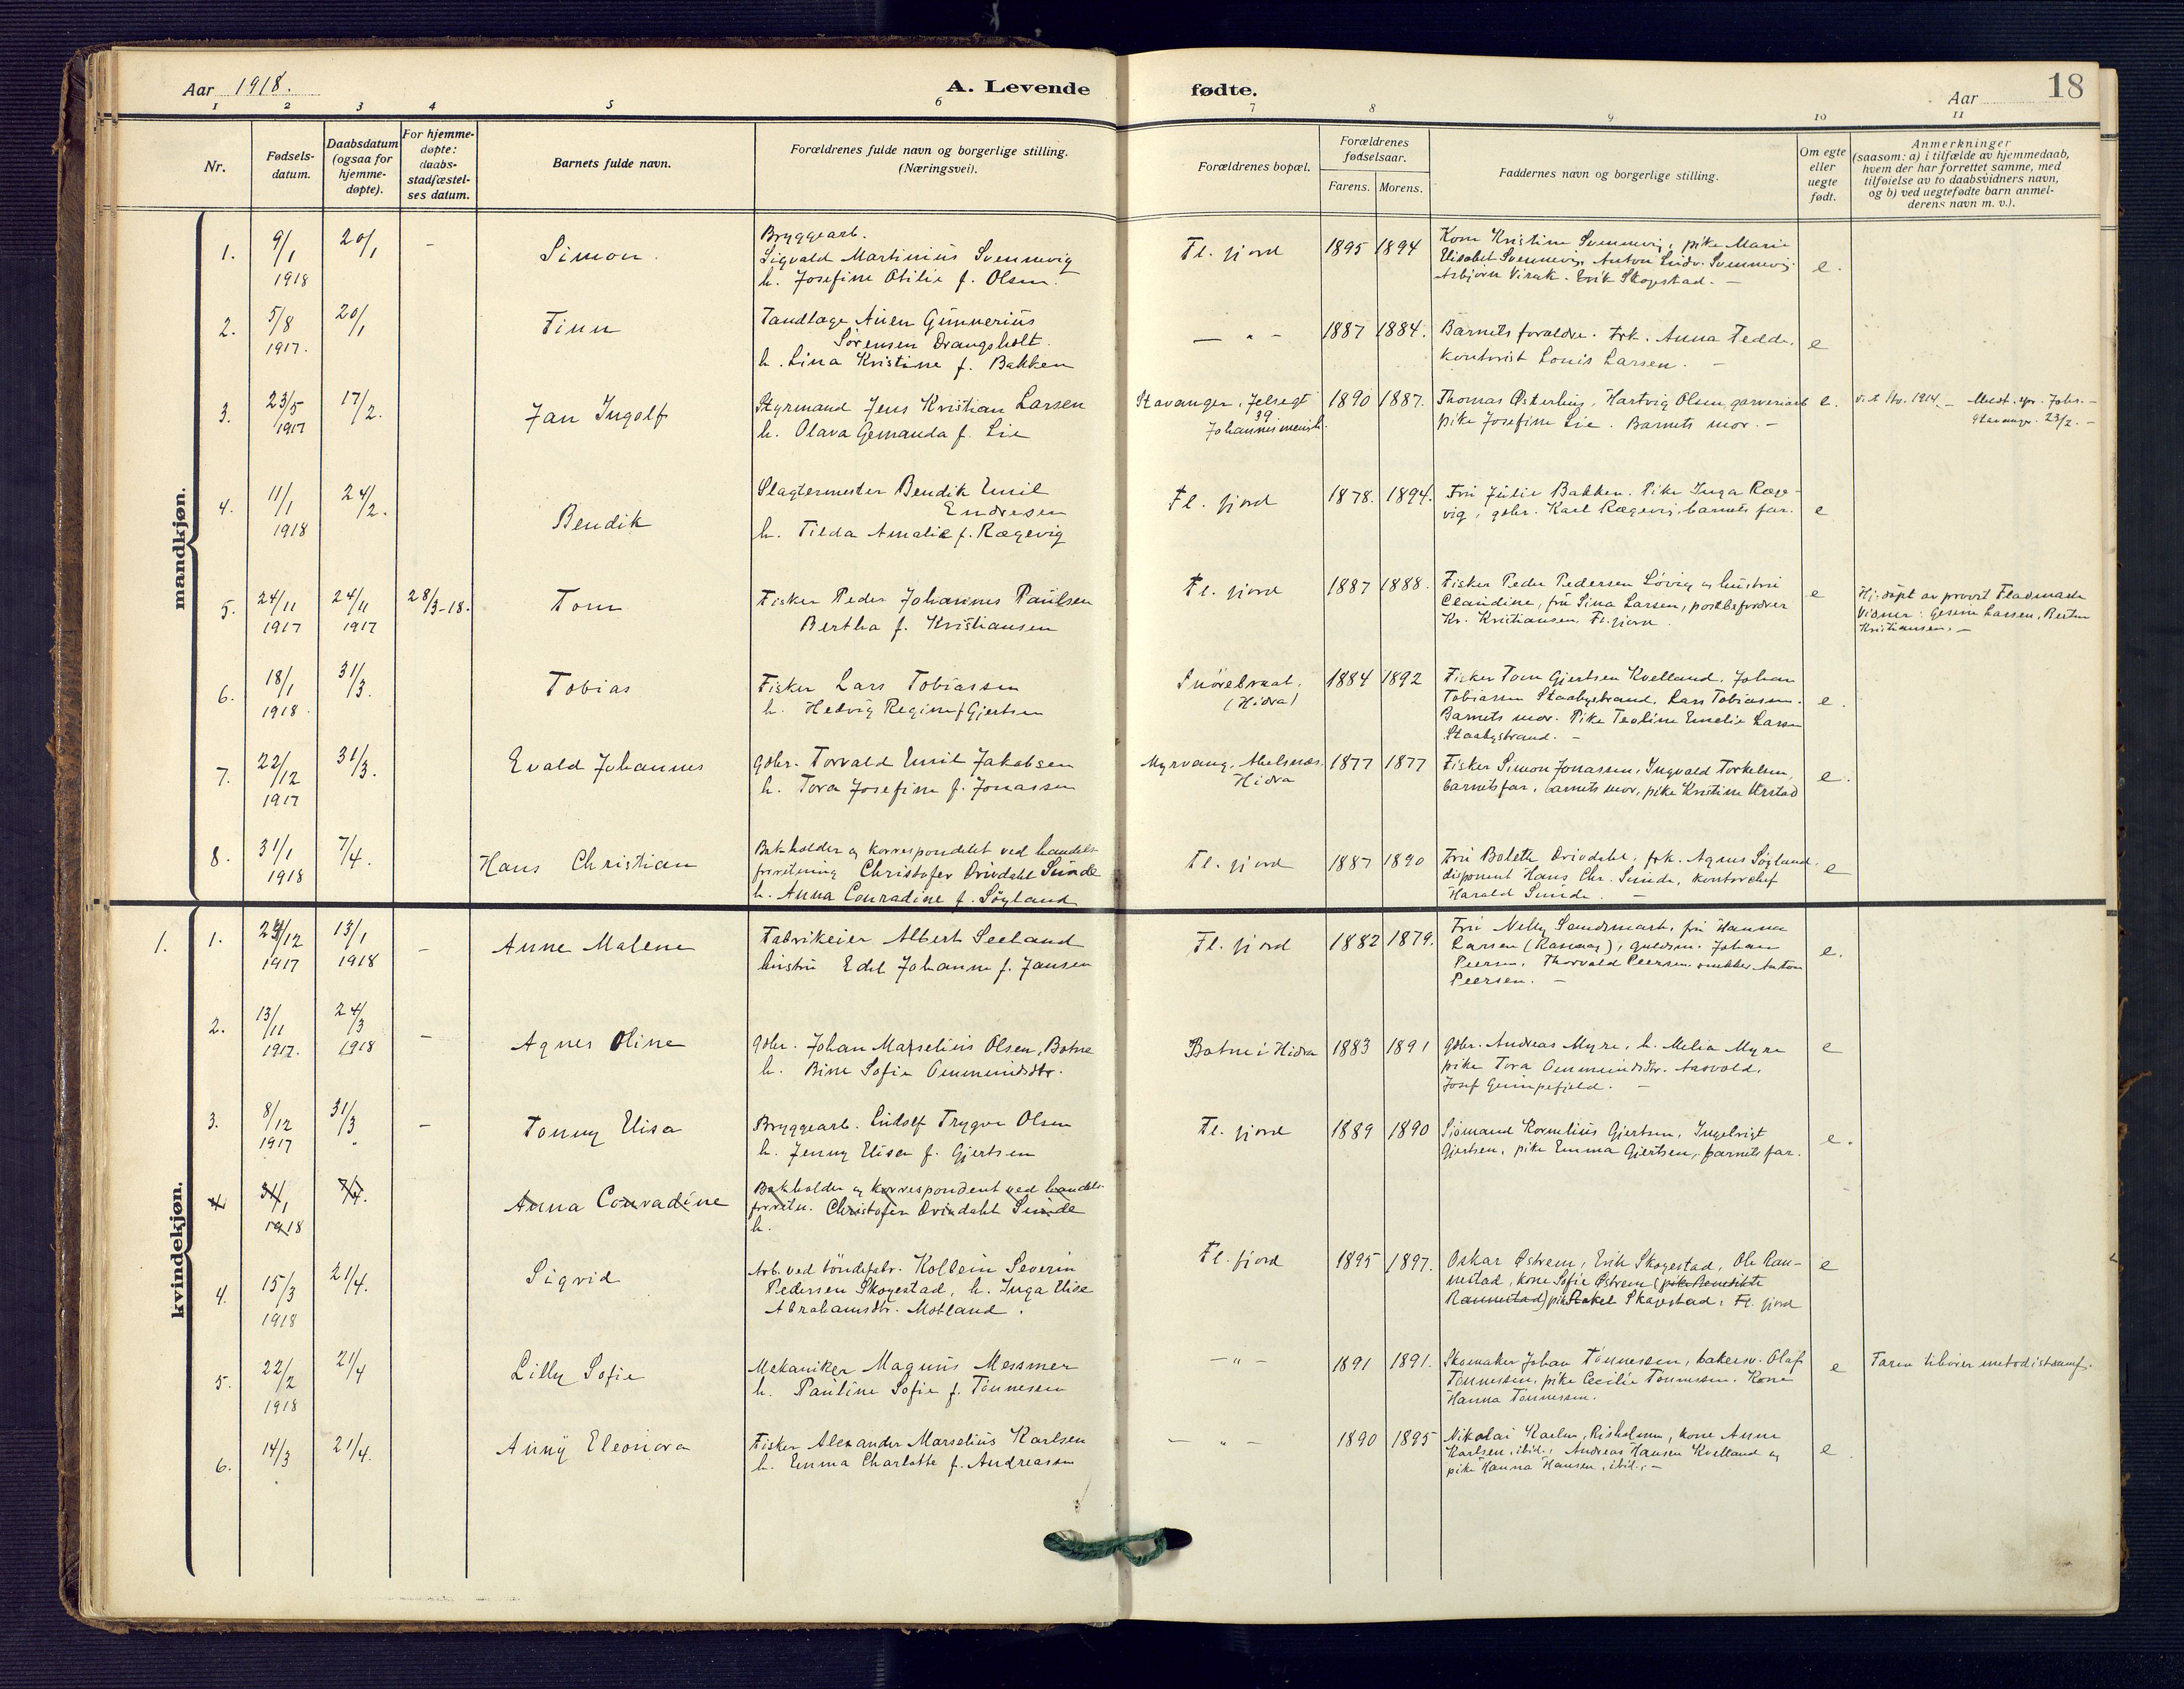 Aar 1918.
A. Levende
fødte.
Aar
18
1 2 3 4 5 6 7 8 9 10 11
Nr.
Fødsels-
datum.
Daabsdatum
(ogsaa for
hjemme-
døpte).
For hjemme-
døpte:
daabs-
stadfæstel-
ses datum.
Barnets fulde navn.
Forældrenes fulde navn og borgerlige stilling.
(Næringsvei).
Forældrenes bopæl.
Forældrenes
fødselsaar.
Farens. Morens.
Faddernes navn og borgerlige stilling.
Om egte
eller
uegte
født.
Anmerkninger
(saasom: a) i tilfælde av hjemmedaab,
hvem der har forrettet samme, med
tilføielse av to daabsvidners navn,
og b) ved uegtefødte barn anmel-
derens navn m. v.).
mandkjøn.
1. 9/1 1918 20/1 - Simon.
Bryggearb.
Sigvald Martinius Svennevig
h. Josefine Otilie f. Olsen.
Fl. fjord 1895 1894
Kone Kristine Svennevig, pike Marie
Elisabet Svennevig, Anton Ludv. Svennevig
Asbjørn Virak. Erik Skogestad. -
e.
2. 5/8 1917. 20/1 Finn
Tandlæge Auen Gunnerius
Sørensen Drangsholt.
h. Lina Kristine f. Bakken
- " - 1887 1884.
Barnets forældre. Frk. Anna Tedde,
kontorist Louis Larsen. -
e
3. 23/5 1917 17/2. Jan Ingolf
Styrmand Jens Kristian Larsen
h. Olava Gemanda f. Lie
Stavanger, Jelsegt
39
Johannis menigh.
1890 1887.
Thomas Østerhus, Hartvig Olsen, garveriarb
pike Josefine Lie. Barnets mor. -
e.
4. 11/1 1918 24/2. Bendik
Slagtermester Bendik Emil
Endresen
h. Tilda Amalie f. Rægevig
Fl. fjord 1878. 1894.
Fru Julie Bakken. Pike Inga Ræge-
vig, gbr. Karl Rægevig, barnets far.
e
5. 24/11 1917 24/11 1917 28/3-18. Tom
Fisker Peder Johannes Paulsen
Bertha f. Kristiansen
Fl. fjord 1887 1888.
Fisker Peder Pedersen Løvig og hustru
Claudine, fru Sina Larsen, postbefordrer
Kr. Kristiansen, Fl. fjord.
e
Hj. døpt av provst Fladmark
Vidner: Gesine Larsen, Berta
Kristiansen. -
6. 18/1 1918. 31/3. Tobias
Fisker Lars Tobiassen
h. Hedvig Regine f. Gjertsen
(Hidra)
1884 1892
Fisker Tom Gjertsen Kvelland, Johan
Tobiassen Staalesbrand, Lars Tobiassen.
Barnets mor. Pike Teoline Emelie Larsen
e.
7. 22/12 1917 31/3. Evald Johannes
gbr. Torvald Emil Jakobsen
h. Tora Josefine f. Jonassen
Myrvang, Abelsnæs,
Hidra
1877 1877
Fisker Simon Jonassen, Ingvald Torkelsen,
barnets far, barnets mor, pike Kristine Urstad
e.
8. 31/1 1918 7/4. Hans Christian
Bokholder og korrespondent ved handels
forretning Christofer Drivdahl Sunde
h. Anna Conradine f. Søyland
Fl. fjord 1887 1890
Fru Bolette Drivdahl, frk. Agnes Søyland,
disponent Hans Chr. Sunde, kontorchef
Harald Sunde. -
e
kvindekjøn.
1. 1. 24/12 1917 13/1 1918 - Anne Malene
Fabrikeier Albert Seeland
hustru Edel Johanne f. Jansen
Fl. fjord 1882 1879.
Fru Nelly Sandsmark, fru Hanna
Larsen (Rasvaag), guldsm. Johan
Peersen, Thorvald Peersen, snekker Anton
Peersen. -
e.
2. 13/11 1917. 24/3 1918 - Agnes Oline
gbr. Johan Marselius Olsen, Botne
h. Bine Sofie Ommundsdtr.
Botne i Hidra 1883 1891
gbr. Andreas Myre, h. Melia Myre
pike Tora Ommundsdtr. Aasvold,
Josef Gumpefjeld. -
e
3. 8/12 1917 31/3 " - Tonny Elisa
Bryggearb. Endolf Trygve Olsen
h. Jenny Elisa f. Gjertsen
Fl. fjord 1889 1890
Sjømand Kornelius Gjertsen, Ingebrigt
Gjertsen, pike Emma Gjertsen, barnets far.
e.
4 31/1 1918 7/4. Anna Conradine
Bokholder og korrespondent ved handels-
forretn. Christofer Drivdahl Sunde
h.
4. 15/3 1918 21/4. Sigrid
Arb. ved tøndefabr. Kolbein Severin
Pedersen Skogestad, h. Inga Elise
Abrahamsdtr. Motland.
Fl. fjord 1895 1897.
Oskar Østrem, Erik Skogestad, Ole Ran-
nestad, kone Sofie Østrem (pike Benedikte
Rannestad) pike Rakel Skogestad, Fl. fjord
e
5. 22/2 1918 21/4 Lilly Sofie
Mekaniker Magnus Messmer
h. Pauline Sofie f. Tønnessen
- " - 1891 1891.
Skomaker Johan Tønnessen, bakersv. Olaf
Tønnessen, pike Cecilie Tønnessen. Kone
Hanna Tønnessen.
e
Faren tilhører metodistsamf.
6. 14/3 21/4. Anny Eleonora
Fisker Alexander Marselius Karlsen
h. Emma Charlotte f. Andreassen
- " - 1890 1895
Nikolai Karlsen, Risholmen, kone Anne
Karlsen, ibid., Andreas Hansen Kvelland og
pike Hanna Hansen, ibid., -
e.